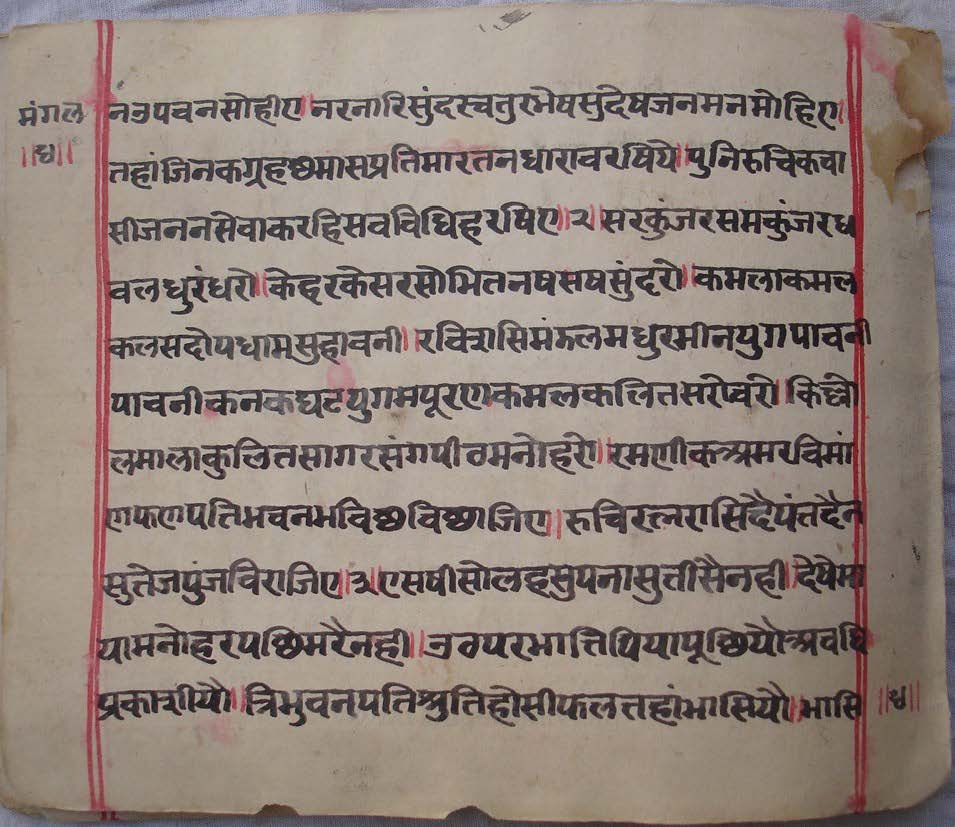 मंगल
॥ध॥
नउपवनसोहीए। नरनारिसुंदरचतुरभेषसुदेषजनमनमोहिए।
तहांजिनकगृहछमासप्रतिमारतनधारावरषिये॥ पुनिरुचिकवा
सीजननसेवाकरहिसवविधिहरषिए॥२॥ सरकुंजरसमकुंजरध
वलधुरंधरो। केहरकेसरसोभितनषसषसुंदरो। कमलाकमल
कलसदोपधामसुहावनी। रविससिमंडलमधुरमीनयुगपावनी
पावनीकनकघटयुगमपूरणकमलकलितसरोवरो। किल्लो
लमालाकुलितसागरसंगपीठमनोहरो॥ रमणीकअमरविमां
णफणपतिभवनभविछविछाजिए। रुचिरत्नरासिदैपंतदैन
सुतेजपुंजविराजिए॥३॥ एसषीसोलहसुपनासुतीसैनही। देषेमा
यामनोहरपछिमरैनही॥ उठपरभातिपियापूछियौअवधि
प्रकाशीयौ। त्रिभुवनपतिश्रुतिहोसीफलतहांभासियौ॥ भासि
॥ध॥